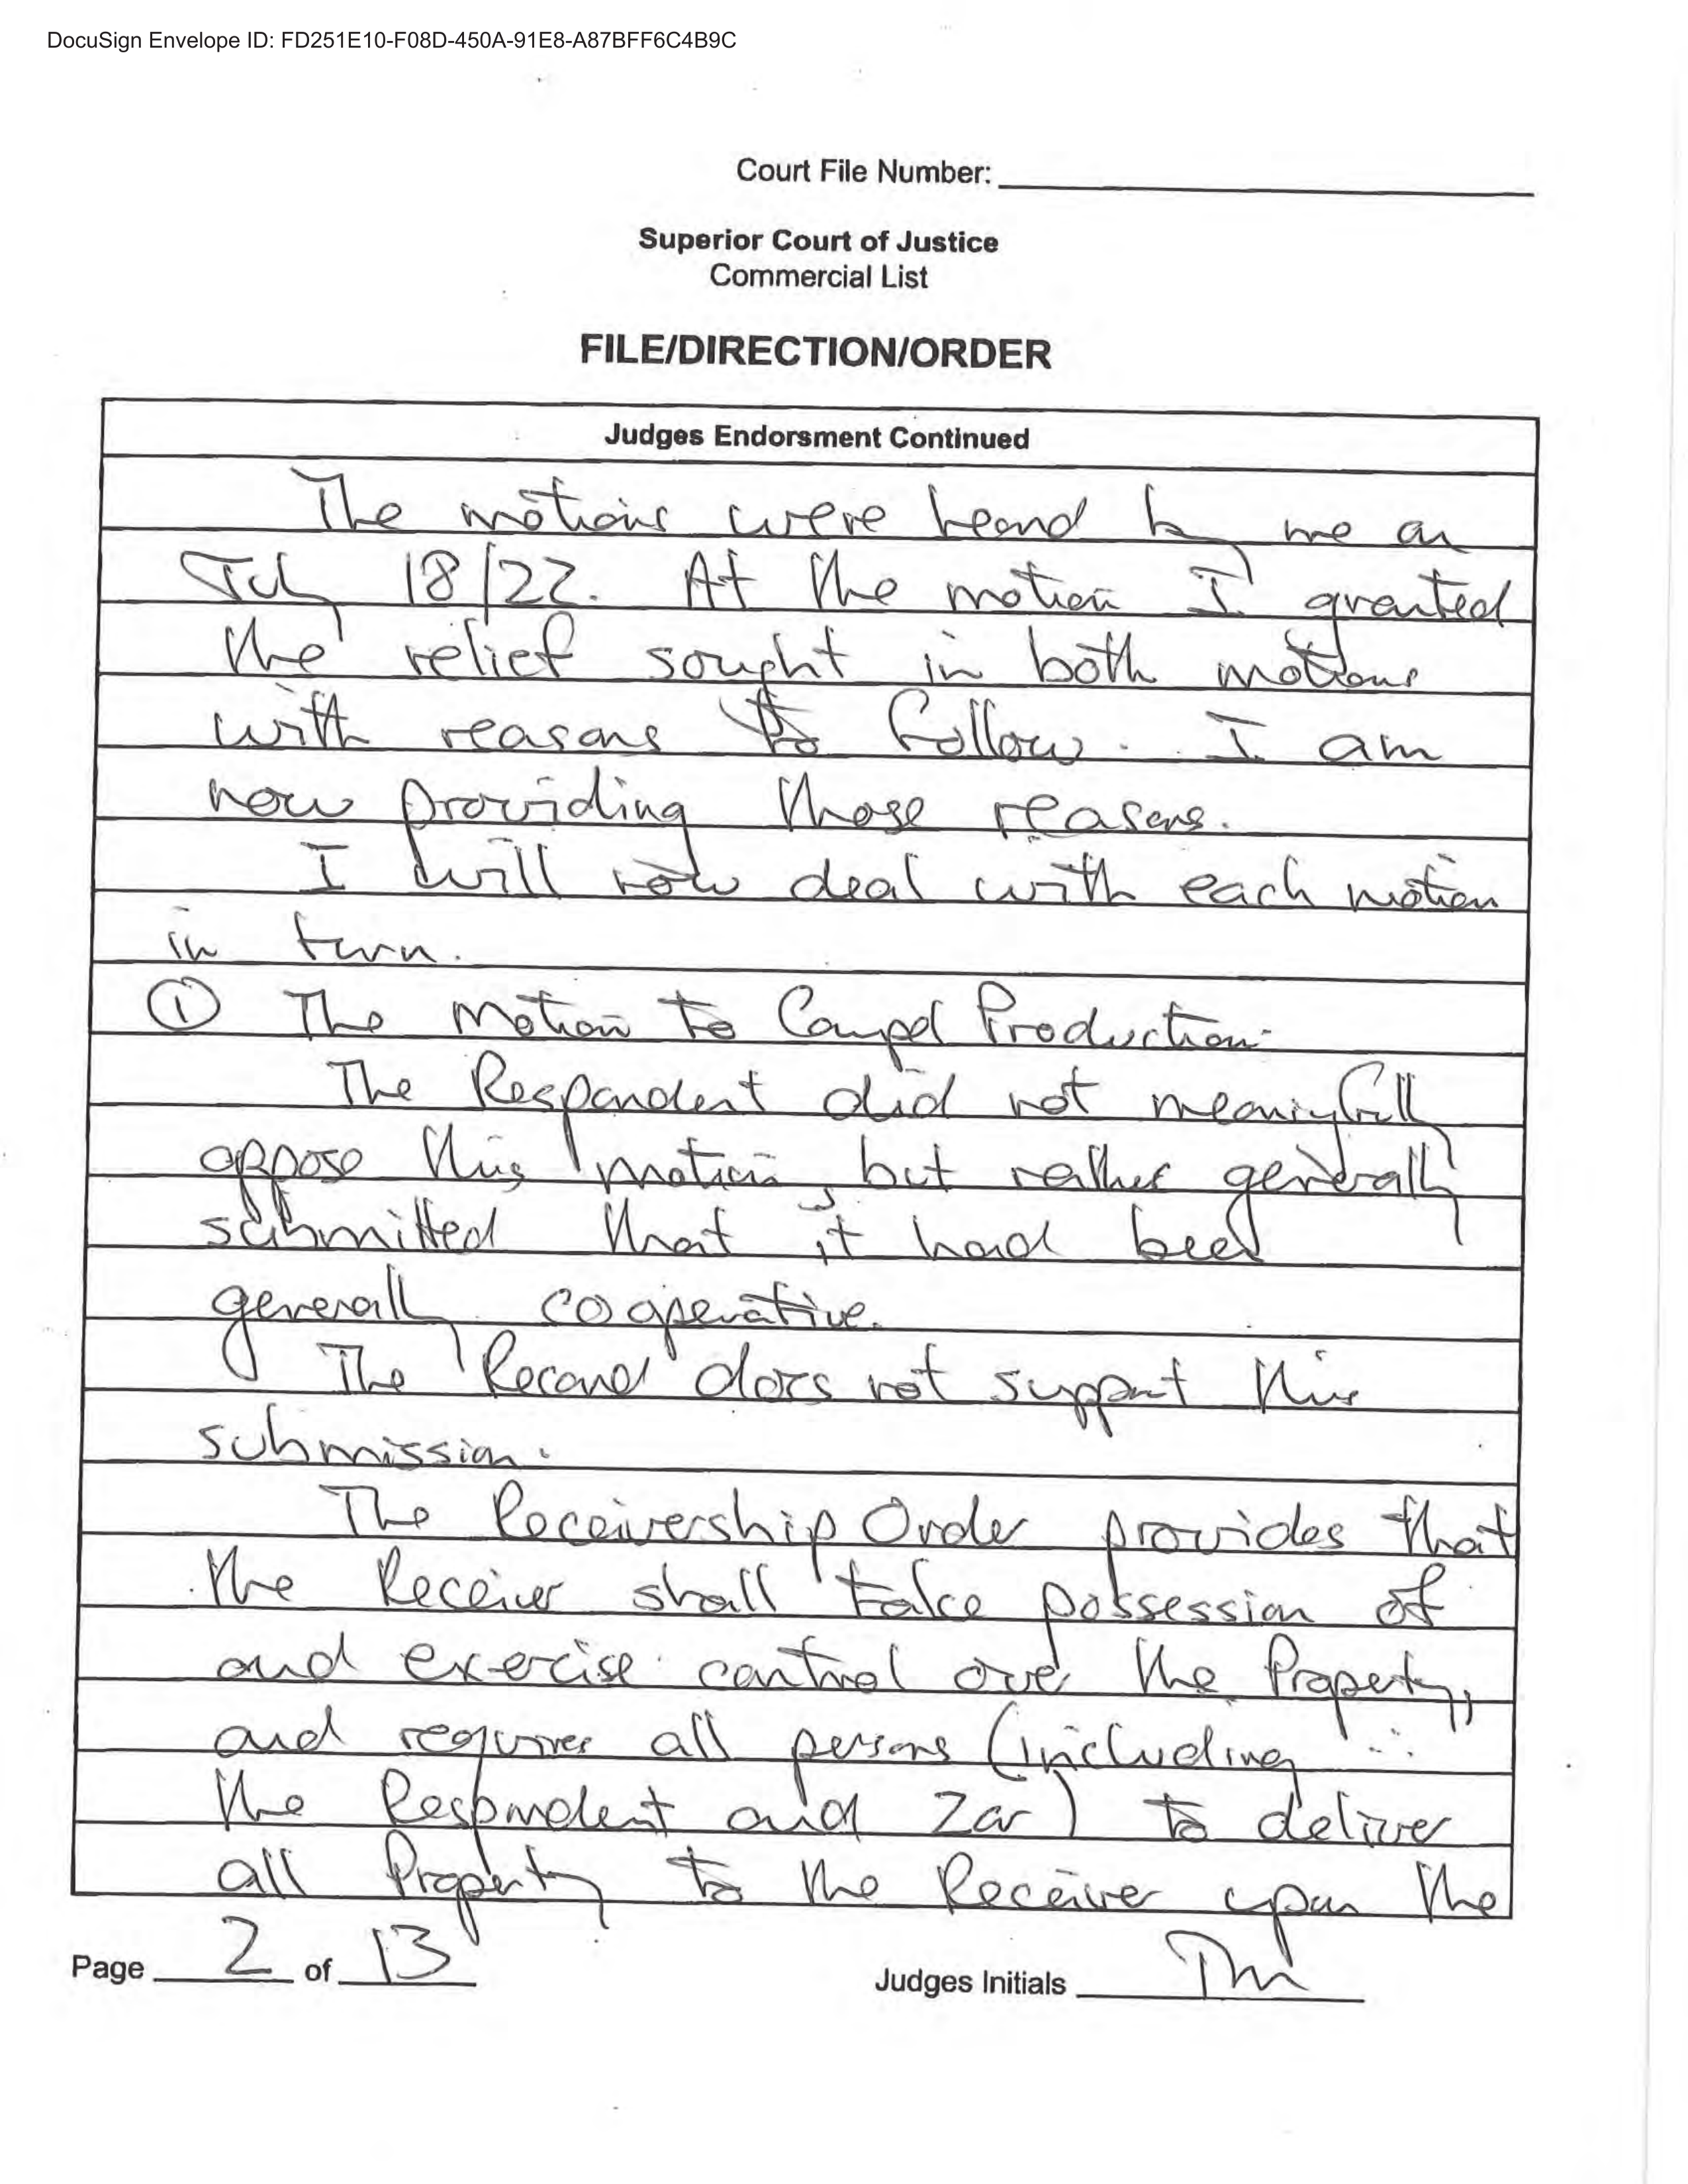 DocuSign Envelope ID: FD251E10-F08D-450A-91E8-A87BFF6C4B9C
Court File Number:
Superior Court of Justice
Commercial List
FILE/DIRECTION/ORDER
Judges Endorsment Continued
The motions were heard by me on
July 18/22. At the motion I granted
the relief sought in both motions
with reasons to follow. I am
now providing those reasons.
I will now deal with each motion
in turn.
① The Motion to Compel Production.
The Respondent did not meaningfully
oppose this motion, but rather generally
submitted that it had been
generally cooperative.
The Record does not support this
submission.
The Receivership Order provides that
the Receiver shall take possession of
and exercise control over the Property,
and requires all persons (including
the Respondent and Zar) to deliver
all Property to the Receiver upon the
Page 2 of 13
Judges Initials